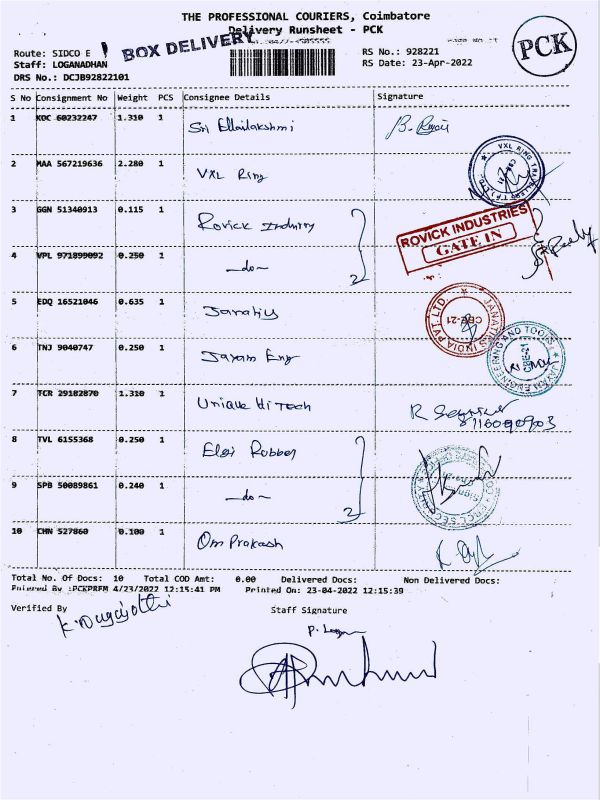 THE PROFESSIONAL COURIERS, Coimbatore
Delivery Runsheet - PCK
Route: SIDCO E
BOX DELIVERY
RS No.: 928221
PCK
Staff: LOGANADHAN
RS Date: 23-Apr-2022
DRS No.: DCJB92822101
S No Consignment No Weight PCS Consignee Details Signature
1 KOC 60232247 1.310 1 Sri Ellailakshmi
2 MAA 567219636 2.280 1 VXL Ring
3 GGN 51340913 0.115 1 Rovick Industry
ROVICK INDUSTRIES
GATE IN
4 VPL 971899092 0.250 1 —do—
2
5 EDQ 16521046 0.635 1 Janatics
JANATICS INDIA PVT. LTD.
CBE-21
6 TNJ 9040747 0.250 1 Jayam Eng
ENGINEERING AND TOOLS
CBE-21
7 TCR 29182870 1.310 1 Unique Hi Tech
8 TVL 6155368 0.250 1 Elgi Rubber
9 SPB 50089861 0.240 1 —do—
2
10 CHN 527860 0.100 1 Om Prakash
Total No. Of Docs: 10 Total COD Amt: 0.00 Delivered Docs: Non Delivered Docs:
Entered By :PCKPRFM 4/23/2022 12:15:41 PM Printed On: 23-04-2022 12:15:39
Verified By Staff Signature